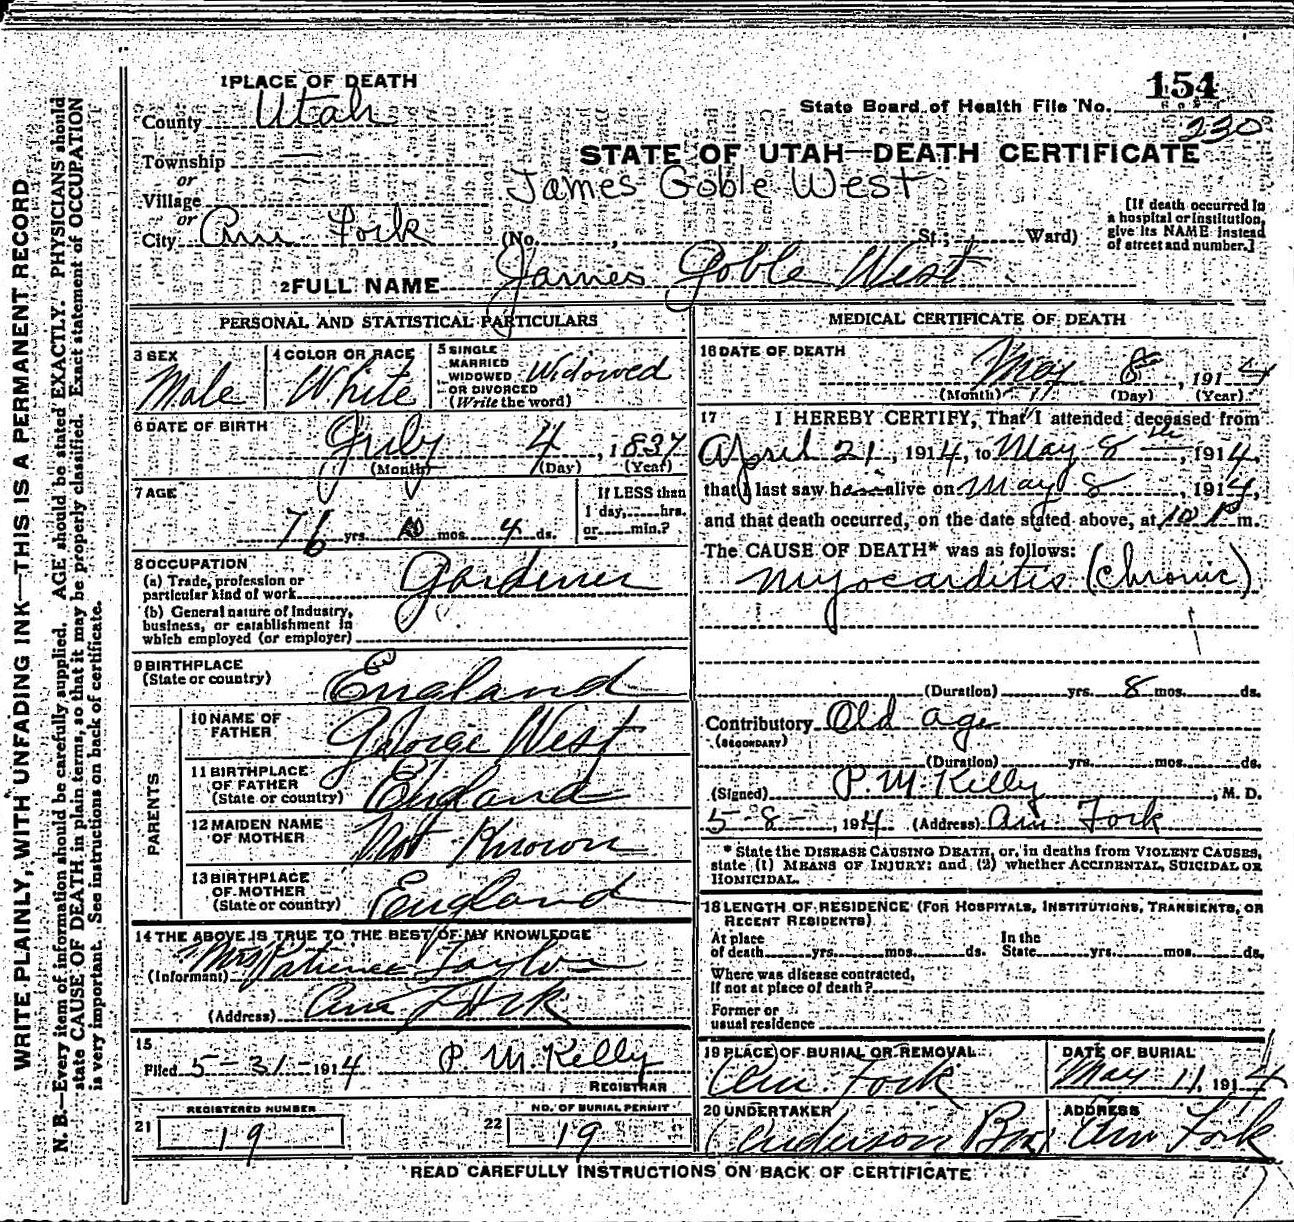 WRITE PLAINLY, WITH UNFADING INK—THIS IS A PERMANENT RECORD
N. B.—Every item of information should be carefully supplied. AGE should be stated EXACTLY. PHYSICIANS should
state CAUSE OF DEATH in plain terms, so that it may be properly classified. Exact statement of OCCUPATION
is very important. See instructions on back of certificate.
1 PLACE OF DEATH
County Utah
Township —
or
Village —
or
City Am Fork
154
State Board of Health File No.
230
STATE OF UTAH—DEATH CERTIFICATE
James Goble West
(No. , St.; Ward)
[If death occurred in
a hospital or institution,
give its NAME instead
of street and number.]
2 FULL NAME James Goble West
PERSONAL AND STATISTICAL PARTICULARS
3 SEX
Male
4 COLOR OR RACE
White
5 SINGLE
MARRIED
WIDOWED
OR DIVORCED
(Write the word)
Widowed
6 DATE OF BIRTH
July 4, 1837
(Month) (Day) (Year)
7 AGE
76 yrs. 10 mos. 4 ds.
If LESS than
1 day, hrs.
or min.?
8 OCCUPATION
(a) Trade, profession or
particular kind of work
Gardener
(b) General nature of Industry,
business, or establishment in
which employed (or employer)
9 BIRTHPLACE
(State or country)
England
PARENTS
10 NAME OF
FATHER
George West
11 BIRTHPLACE
OF FATHER
(State or country)
England
12 MAIDEN NAME
OF MOTHER
Not Known
13 BIRTHPLACE
OF MOTHER
(State or country)
England
14 THE ABOVE IS TRUE TO THE BEST OF MY KNOWLEDGE
(Informant) Mrs Patience Taylor
(Address) Am Fork
15
Filed 5-31-1914 P. M. Kelly
REGISTRAR
REGISTERED NUMBER
21 19
NO. OF BURIAL PERMIT
22 19
MEDICAL CERTIFICATE OF DEATH
16 DATE OF DEATH
May 8, 1914
(Month) (Day) (Year)
17 I HEREBY CERTIFY, That I attended deceased from
April 21, 1914, to May 8th, 1914,
that I last saw h alive on May 8, 1914,
and that death occurred, on the date stated above, at 10 P m.
The CAUSE OF DEATH* was as follows:
Myocarditis (Chronic)
(Duration) yrs. 8 mos. ds.
Contributory Old age
(SECONDARY)
(Duration) yrs. mos. ds.
(Signed) P. M. Kelly, M. D.
5-8-, 1914 (Address) Am. Fork
* State the DISEASE CAUSING DEATH, or, in deaths from VIOLENT CAUSES,
state (1) MEANS OF INJURY; and (2) whether ACCIDENTAL, SUICIDAL OR
HOMICIDAL.
18 LENGTH OF RESIDENCE (FOR HOSPITALS, INSTITUTIONS, TRANSIENTS, OR
RECENT RESIDENTS)
At place
of death yrs. mos. ds.
In the
State yrs. mos. ds.
Where was disease contracted,
If not at place of death?
Former or
usual residence
19 PLACE OF BURIAL OR REMOVAL
Am. Fork
DATE OF BURIAL
May 11, 1914
20 UNDERTAKER
Anderson Bros
ADDRESS
Am Fork
READ CAREFULLY INSTRUCTIONS ON BACK OF CERTIFICATE